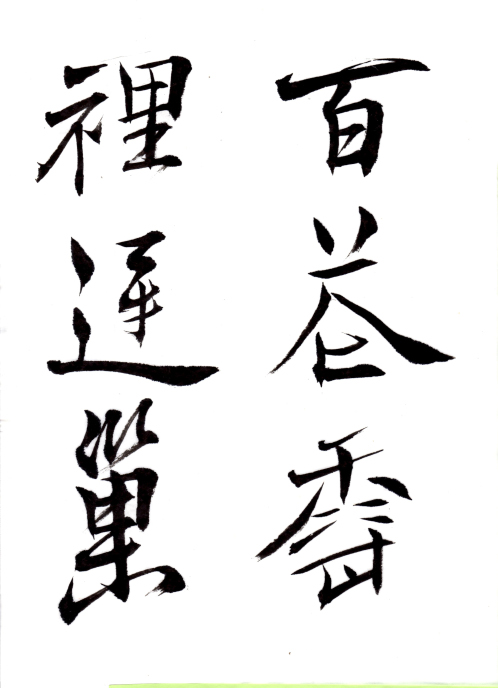 百花香
裡運巢